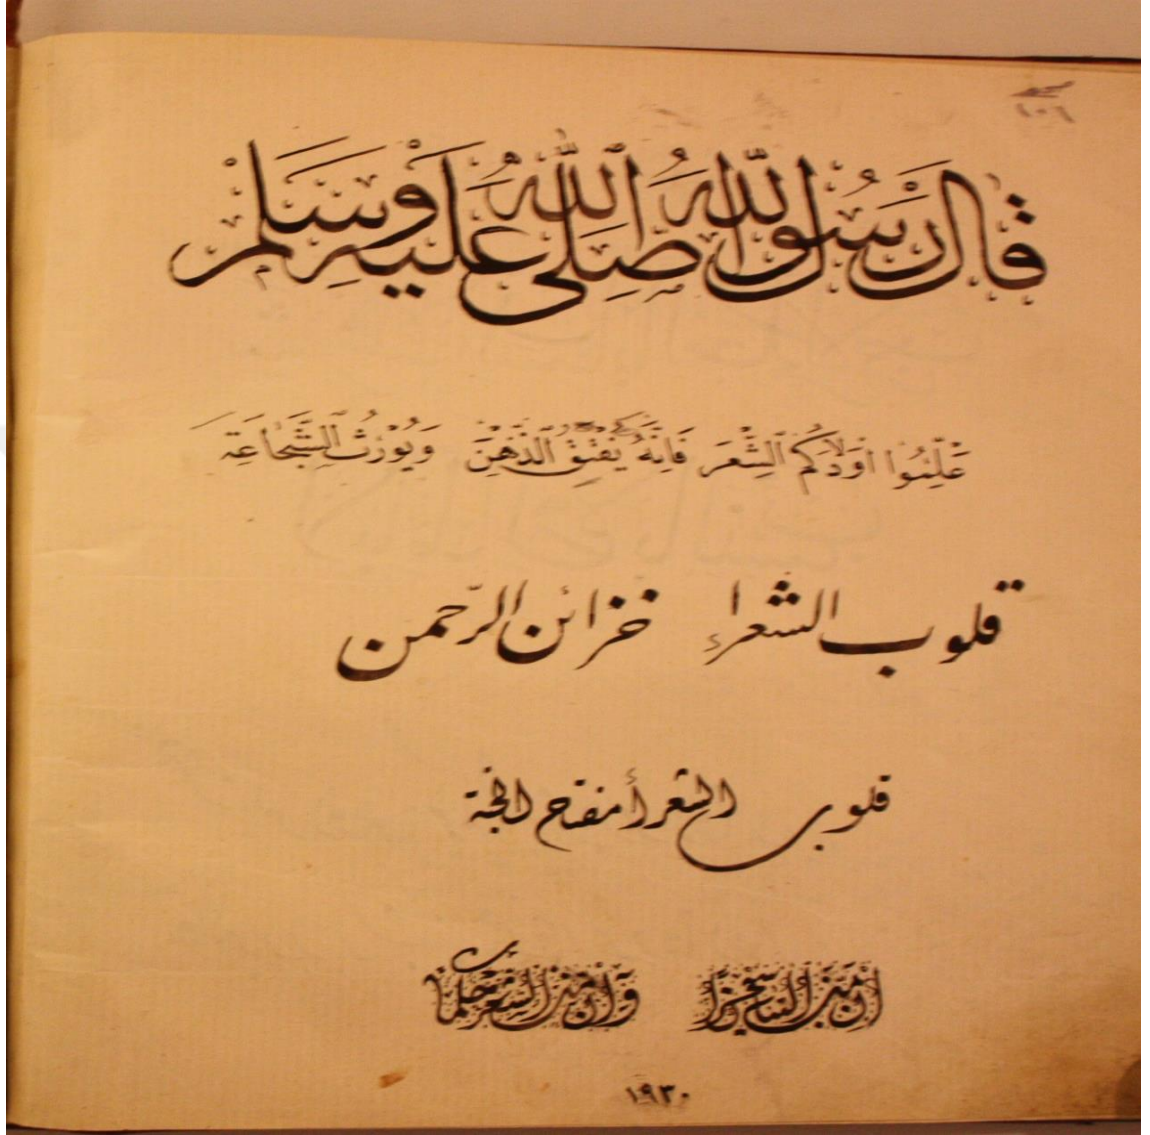 ١٠٦
قَالَ رَسُولُ اللهِ صَلَّى اللهُ عَلَيْهِ وَسَلَّم
عَلِّمُوا اَوْلَادَكُمُ الشِّعْرَ فَاِنَّهُ يَفْتِقُ الذِّهْنَ وَيُورِثُ الشَّجَاعَةَ
قلوب الشعراء خزائن الرّحمن
قلوب الشعرأ مفتح الجنة
اِنَّ مِنَ الْبَيَانِ وَاِنَّ مِنَ الشِّعْرِ
١٩٣٠